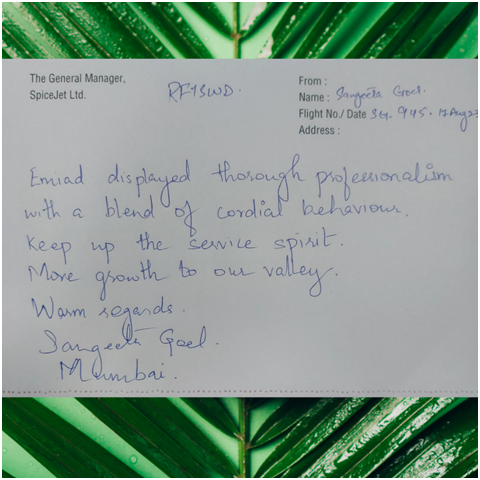 The General Manager,
SpiceJet Ltd.
RF13WD.
From :
Name : Sangeeta Goel.
Flight No./ Date SG. 945. 17Aug23
Address :
Emiad displayed thorough professionalism
with a blend of cordial behaviour.
Keep up the service spirit.
More growth to our valley.
Warm regards.
Sangeeta Goel.
Mumbai.